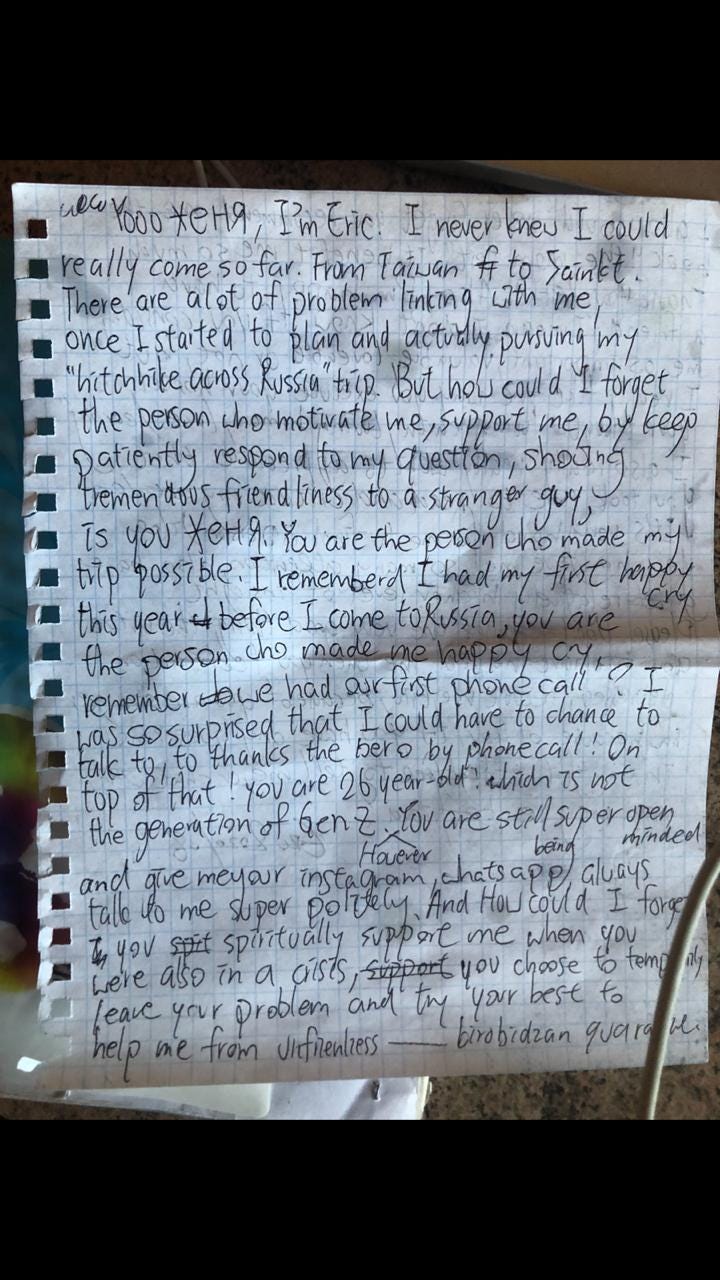 Yooo Женя, I'm Eric. I never knew I could
really come so far. From Taiwan to Sainkt.
There are alot of problem linking with me,
once I started to plan and actually pursuing my
"hitchhike across Russia" trip. But how could I forget
the person who motivate me, support me, by keep
patiently respond to my question, showing
tremendous friendliness to a stranger guy,
is you Женя. You are the person who made my
trip possible. I rememberd I had my first happy
cry
this year before I come to Russia, you are
the person who made me happy cry,
remember we had our first phone call ? I
was so surprised that I could have to chance to
talk to, to thanks the hero by phonecall! On
top of that! you are 26 year-old! which is not
the generation of Gen Z. You are still super open
minded
However
being
and give meyour instagram, whatsapp, always
talk to me super politely. And How could I forget
you spiritually support me when you
were also in a crisis, you choose to
leave your problem and try your best to
help me from — birobidzan